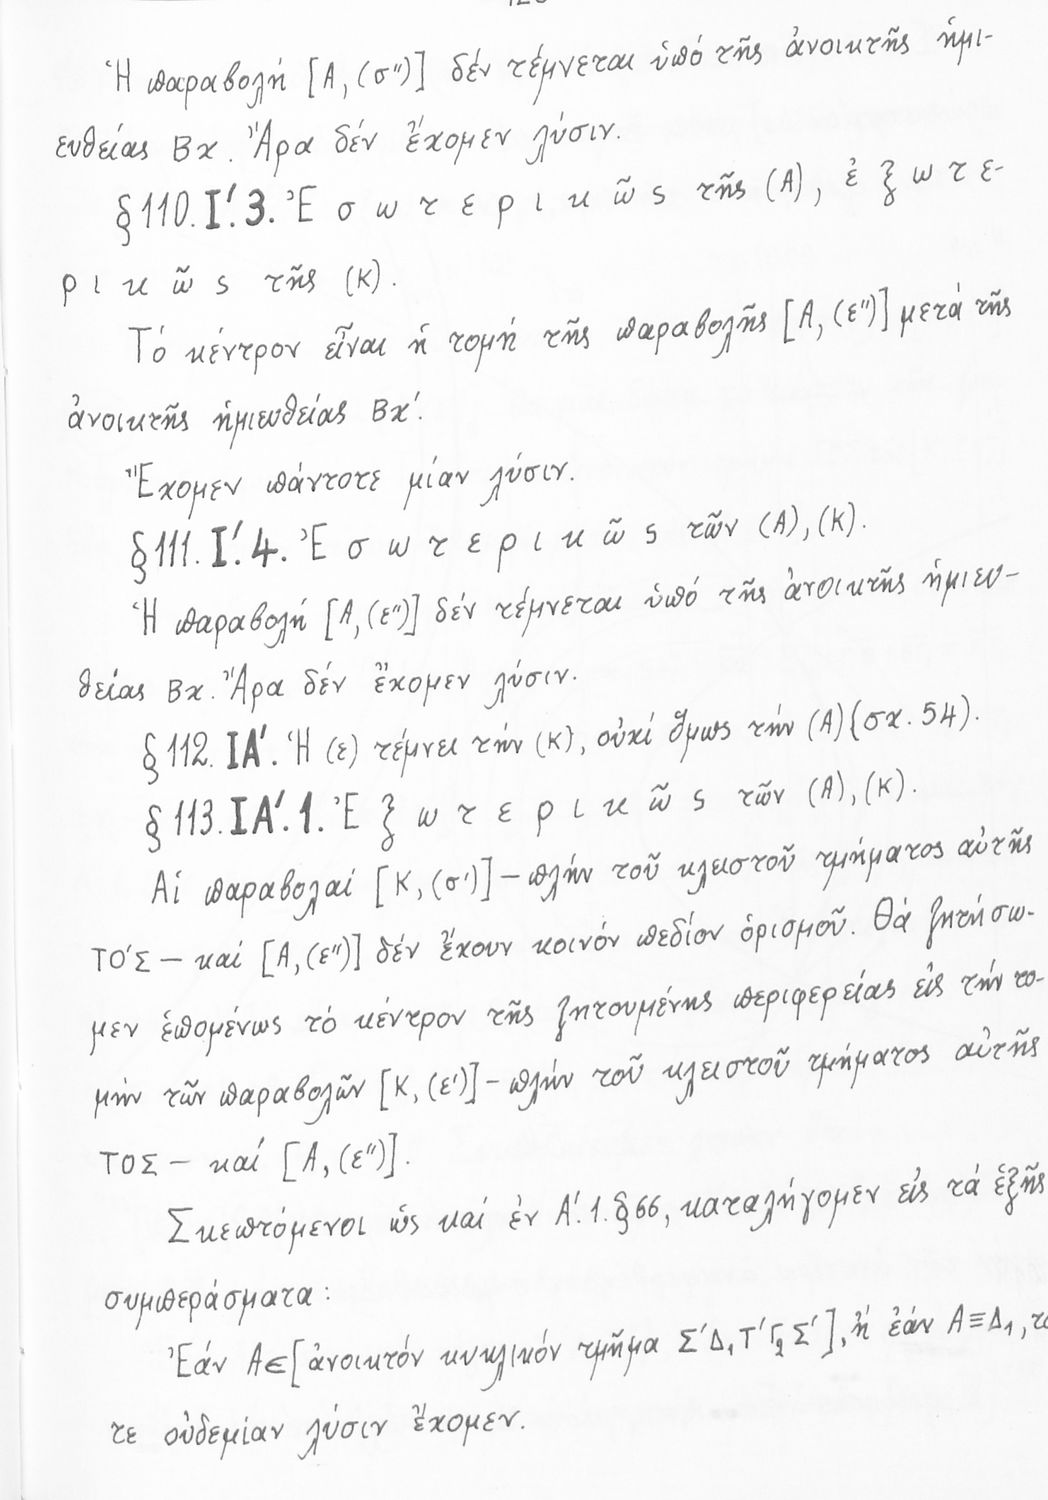 Ἡ παραβολή [Α, (σ'')] δέν τέμνεται ὑπό τῆς ἀνοικτῆς ἡμι-
ευθείας Βχ. Ἄρα δέν ἔχομεν λύσιν.
§110. Ι'. 3. Ἐσωτερικῶς τῆς (Α), ἐξωτε-
ρικῶς τῆς (Κ).
Τό κέντρον εἶναι ἡ τομή τῆς παραβολῆς [Α, (ε'')] μετά τῆς
ἀνοικτῆς ἡμιευθείας Βχ'.
Ἔχομεν πάντοτε μίαν λύσιν.
§111. Ι'. 4. Ἐσωτερικῶς τῶν (Α), (Κ).
Ἡ παραβολή [Α, (ε'')] δέν τέμνεται ὑπό τῆς ἀνοικτῆς ἡμιευ-
θείας Βχ. Ἄρα δέν ἔχομεν λύσιν.
§112. ΙΑ'. Ἡ (ε) τέμνει τήν (Κ), οὐχί ὅμως τήν (Α) (σχ. 54).
§113. ΙΑ'. 1. Ἐξωτερικῶς τῶν (Α), (Κ).
Αἱ παραβολαί [Κ, (σ')] – πλήν τοῦ κλειστοῦ τμήματος αὐτῆς
ΤΟ'Σ – καί [Α, (ε'')] δέν ἔχουν κοινόν πεδίον ὁρισμοῦ. Θά ζητήσω-
μεν ἑπομένως τό κέντρον τῆς ζητουμένης περιφερείας εἰς τήν το-
μήν τῶν παραβολῶν [Κ, (ε')] – πλήν τοῦ κλειστοῦ τμήματος αὐτῆς
ΤΟΣ – καί [Α, (ε'')].
Σκεπτόμενοι ὡς καί ἐν Α'. 1. §66, καταλήγομεν εἰς τά ἑξῆς
συμπεράσματα:
Ἐάν Α∈[ἀνοικτόν κυκλικόν τμῆμα Σ'Δ₁Τ'Γ₂Σ'], ἤ ἐάν Α≡Δ₁, τό
τε οὐδεμίαν λύσιν ἔχομεν.